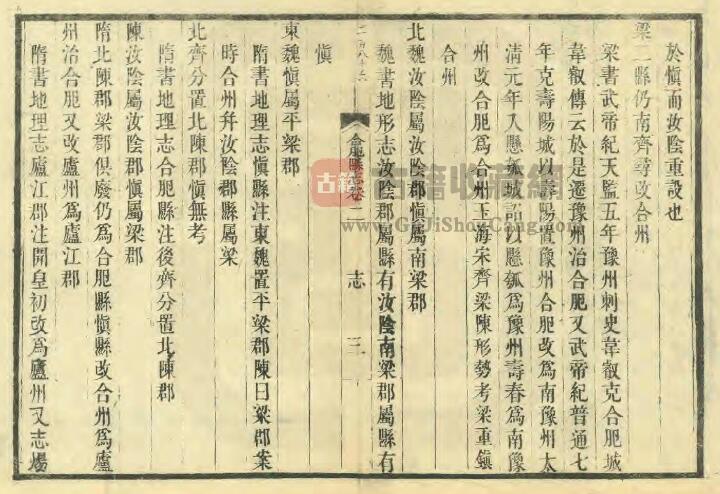 於愼而汝陰重設也
梁二縣仍南齊尋改合州
梁書武帝紀天監五年豫州刺史韋叡克合肥城
韋叡傳云於是遷豫州治合肥又武帝紀普通七
年克壽陽城以壽陽置豫州合肥改爲南豫州太
清元年入懸瓠城詔以懸瓠爲豫州壽春爲南豫
州改合肥爲合州玉海宋齊梁陳形勢考梁重鎮
合州
北魏汝陰屬汝陰郡愼屬南梁郡
魏書地形志汝陰郡屬縣有汝陰南梁郡屬縣有
合肥縣志卷二 志 三
愼
東魏愼屬平梁郡
隋書地理志愼縣注東魏置平梁郡陳曰梁郡業
時合州幷汝陰郡縣屬梁
北齊分置北陳郡愼無考
隋書地理志合肥縣注後齊分置北陳郡
陳汝陰屬汝陰郡愼屬梁郡
隋北陳郡梁郡俱廢仍爲合肥縣愼縣改合州爲廬
州治合肥又改廬州爲廬江郡
隋書地理志廬江郡注開皇初改爲廬州又志煬
古籍
古籍收藏網
www.GuJiShouCang.com